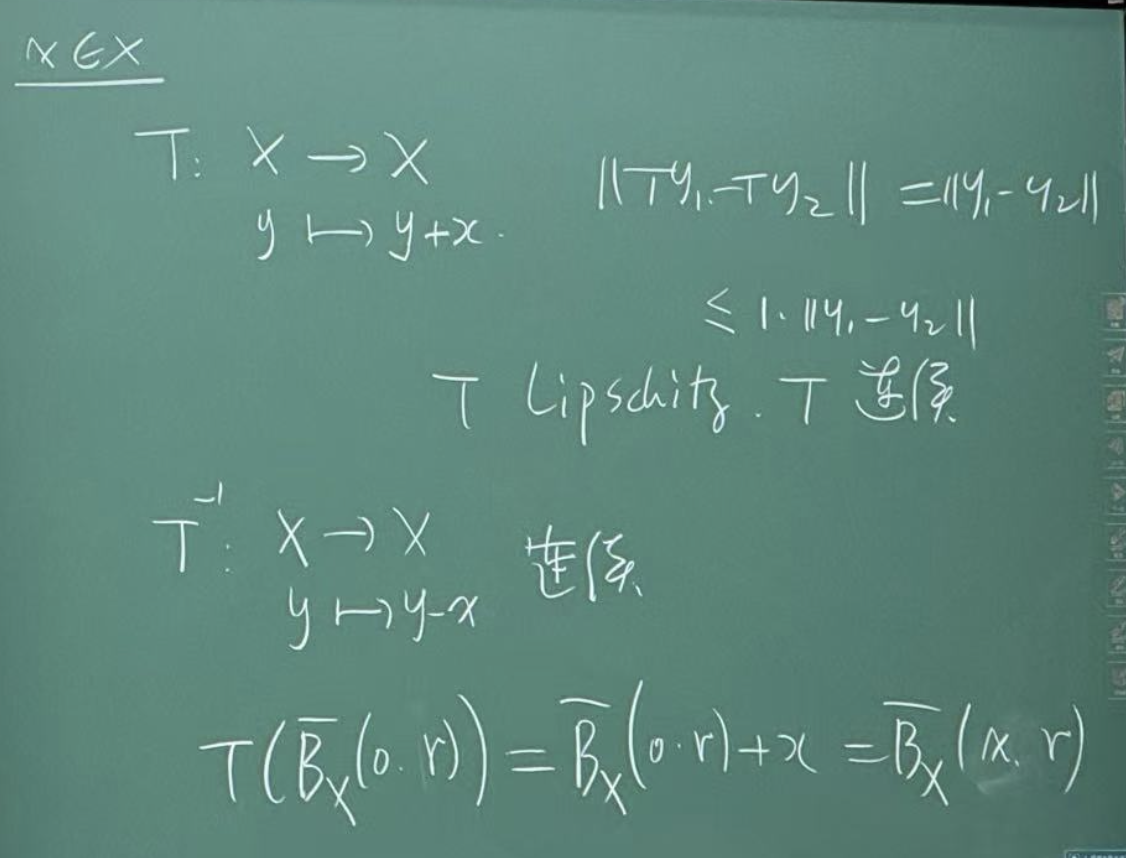 x ∈ X
T: X → X
y ↦ y+x.
‖Ty₁-Ty₂‖ = ‖y₁-y₂‖
≤ 1·‖y₁-y₂‖
T Lipschitz. T 连续
T⁻¹: X → X 连续
y ↦ y-x
T(B̅_X(0.r)) = B̅_X(0.r)+x = B̅_X(x.r)